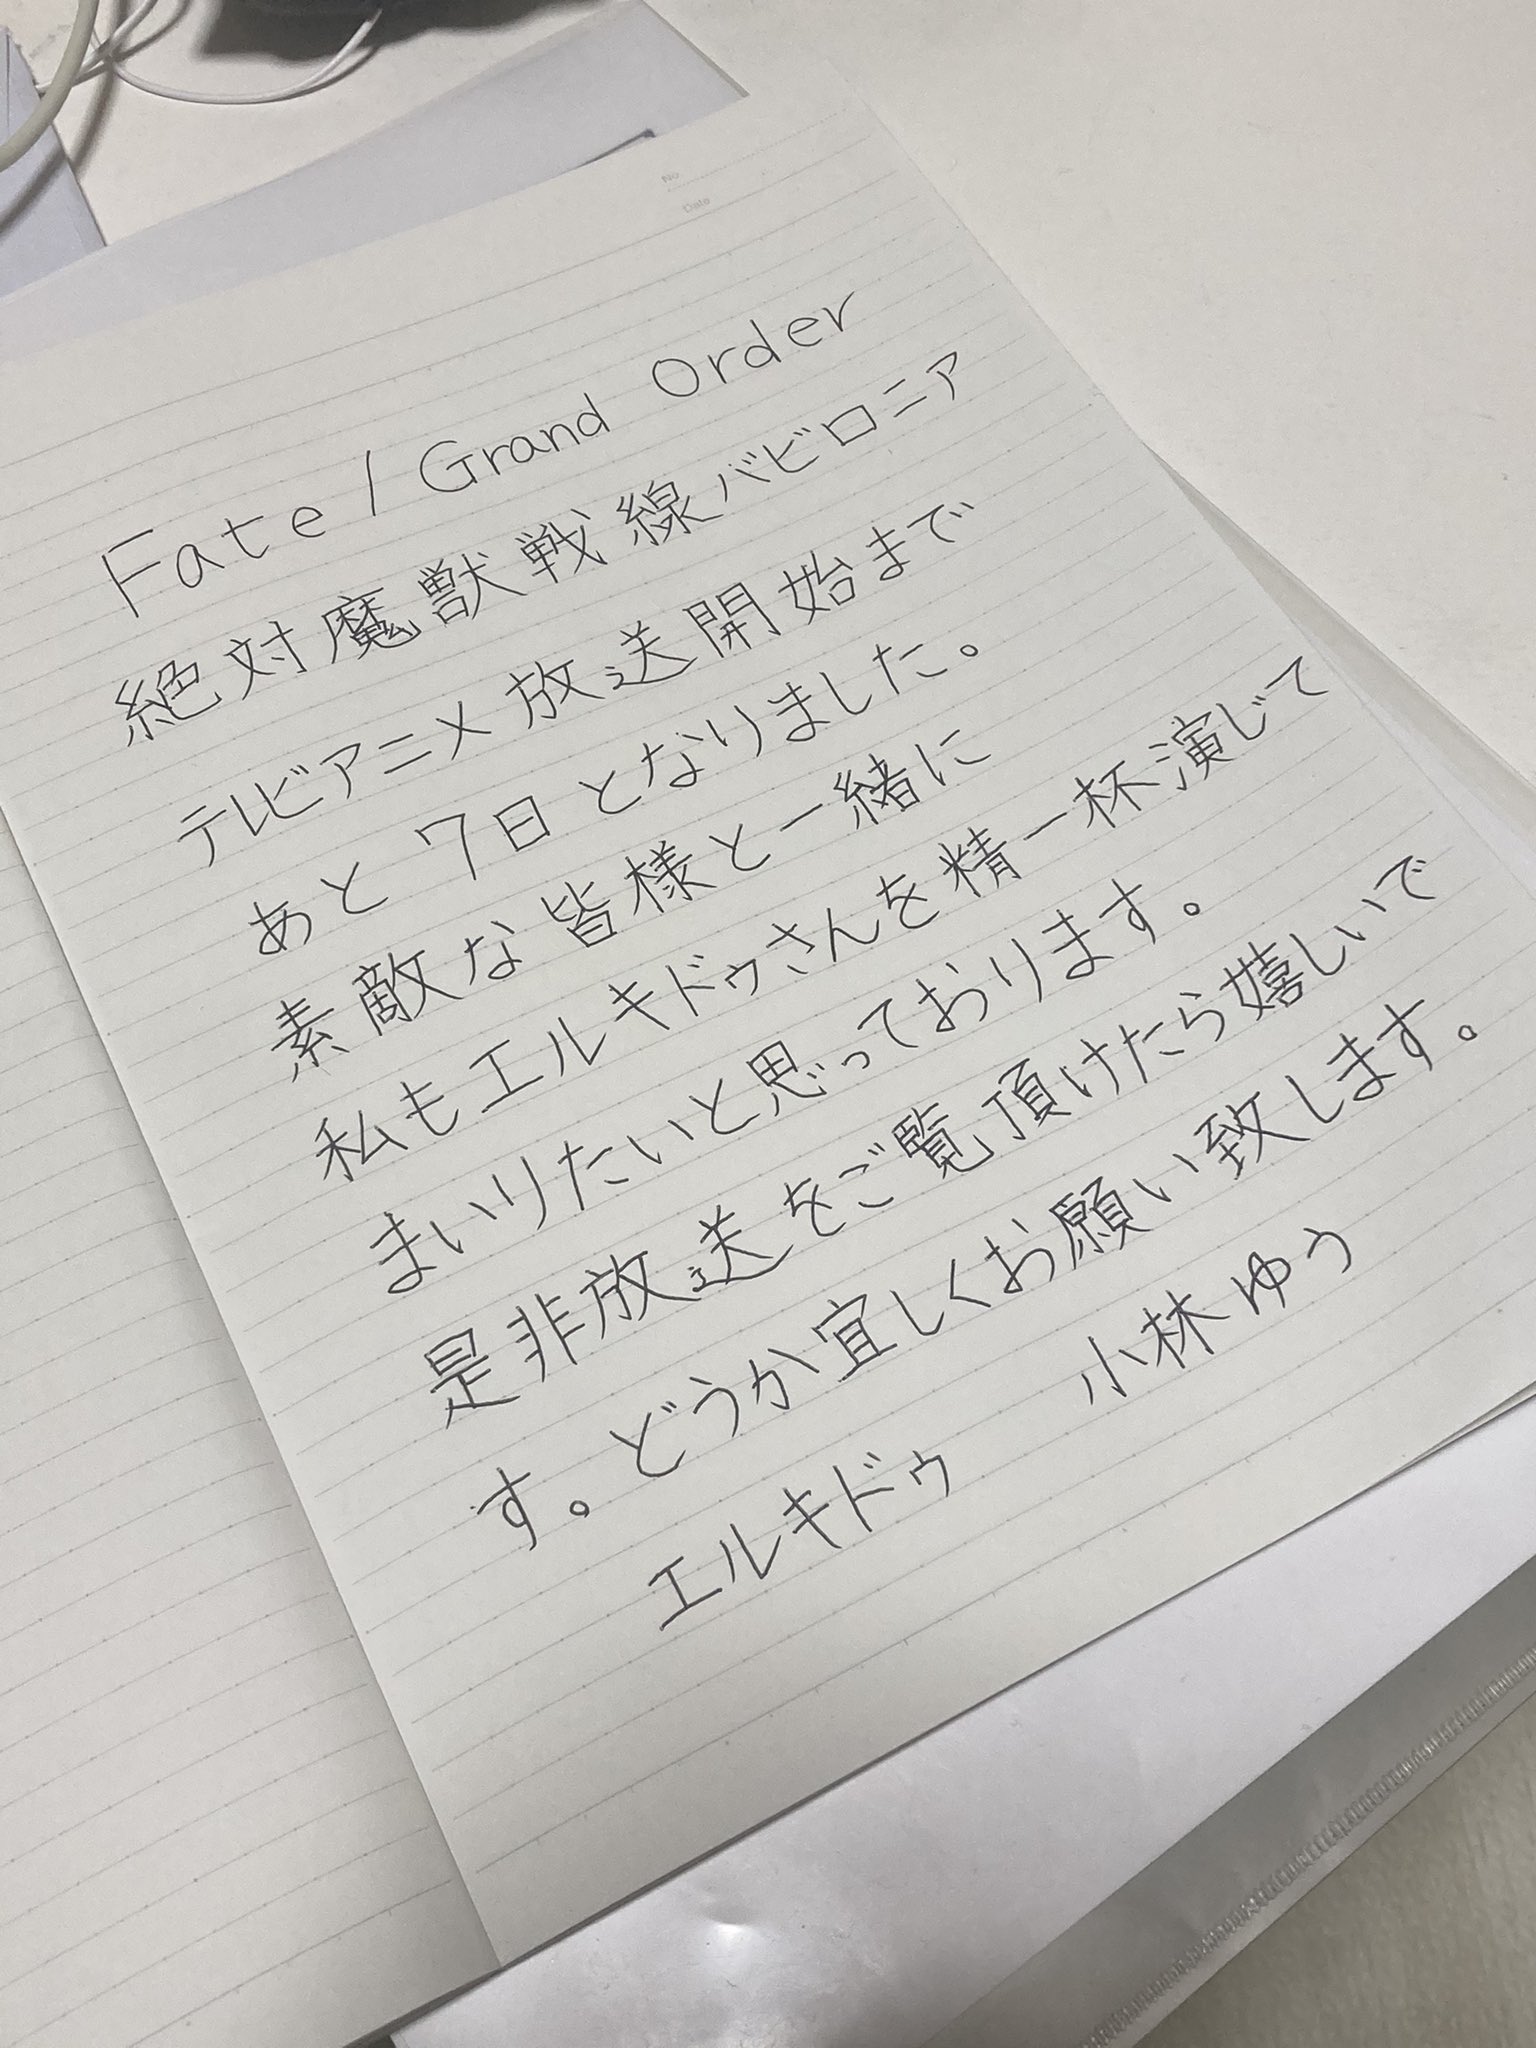 No.
Date
Fate / Grand Order
絶対魔獣戦線バビロニア
テレビアニメ放送開始まで
あと7日となりました。
素敵な皆様と一緒に
私もエルキドゥさんを精一杯演じて
まいりたいと思っております。
是非放送をご覧頂けたら嬉しいで
す。どうか宜しくお願い致します。
エルキドゥ 小林ゆう